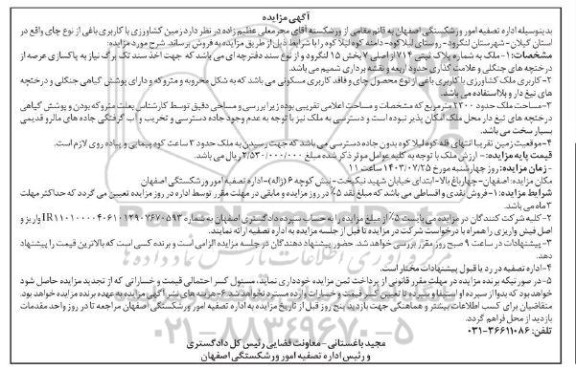 آگهی مزایده
بدینوسیله اداره تصفیه امور ورشکستگی اصفهان به قائم مقامی از ورشکسته آقای محرمعلی عظیم زاده در نظر دارد زمین کشاورزی با کاربری باغی از نوع چای واقع در
استان گیلان- شهرستان لنگرود- روستای لیلاکوه- دامنه کوه لیلا کوه را با شرایط ذیل از طریق مزایده به فروش برساند. شرح مورد مزایده:
مشخصات: ۱- ملک به شماره پلاک ثبتی ۷۱۴ از اصلی ۷ بخش ۱۵ لنگرود و از نوع سند دفترچه ای می باشد که جهت اخذ سند تک برگ نیاز به پاکسازی عرصه از
درختچه های جنگلی و علامت گذاری حدود اربعه و نقشه برداری شمیم می باشد.
۲- کاربری ملک کشاورزی با کاربری باغی از نوع محصول چای و فاقد کاربری مسکونی می باشد که به شکل مخروبه و متروکه و دارای پوشش گیاهی جنگلی و درختچه
های تیغ دار و بلااستفاده می باشد.
۳- مساحت ملک حدود ۲۲۰۰ مترمربع که مشخصات و مساحت اعلامی تقریبی بوده زیرا بررسی و مساحی دقیق توسط کارشناس بعلت متروکه بودن و پوشش گیاهی
درختچه های تیغ دار محل ملک امکان پذیر نبوده است و دسترسی به ملک نیز با توجه به عدم وجود جاده دسترسی و تخریب و آب گرفتگی جاده های مالرو قدیمی
بسیار سخت می باشد.
۴- موقعیت زمین تقریبا انتهای قله کوه لیلا کوه بدون جاده دسترسی می باشد که جهت رسیدن به ملک حدود ۳ ساعت کوه پیمایی و پیاده روی لازم است.
قیمت پایه مزایده:- ارزش ملک با توجه به کلیه عوامل موثر ذکر شده مبلغ ۲/۵۳۰/۰۰۰/۰۰۰ ریال می باشد.
- زمان مزایده: روز چهارشنبه مورخ ۱۴۰۳/۰۷/۲۵ ساعت ۱۱
مکان مزایده: اصفهان- چهارباغ بالا- ابتدای خیابان شهید نیکبخت- نبش کوچه ۶ (ژاله)- اداره تصفیه امور ورشکستگی اصفهان
شرایط مزایده: ۱- فروش نقدی و اقساطی می باشد که مبلغ نقد ۵٪ در روز مزایده و مابقی در مهلت مقرر توسط اداره در روز مزایده تعیین می گردد که حداکثر مهلت
۳ ماه می باشد.
۲- کلیه شرکت کنندگان در مزایده می بایست ۵٪ از مبلغ مزایده را به حساب سپرده دادگستری اصفهان به شماره واریز و
اصل فیش واریزی را همراه با درخواست شرکت در مزایده تا قبل از جلسه مزایده به اداره تصفیه ارائه نمایند.
۳- پیشنهادات در ساعت ۹ صبح روز مقرر بررسی خواهد شد. حضور پیشنهاد دهندگان در جلسه مزایده الزامی است و برنده کسی است که بالاترین قیمت را پیشنهاد
دهد.
۴- اداره تصفیه در رد یا قبول پیشنهادات مختار است.
۵- در صورتیکه برنده مزایده در مهلت مقرر قانونی از پرداخت ثمن مزایده خودداری نماید، مسئول کسر احتمالی قیمت و خساراتی که از تجدید مزایده حاصل شود
خواهد بود که بدوا از سپرده او استیفا و سپرده تا تعیین کسر قیمت و خسارات وارده مسترد نخواهد شد ۶- هزینه های نشر آگهی مزایده به عهده برنده مزایده خواهد بود.
متقاضیان برای کسب اطلاعات بیشتر و هماهنگی جهت بازدید پنج روز قبل از تاریخ مزایده به اداره تصفیه امور ورشکستگی اصفهان مراجعه تا در روز واحد مقدمات
بازدید از محل فراهم گردد.
تلفن: ۰۳۱-۳۶۶۱۱۰۸۶
مجید باغستانی- معاونت قضایی رئیس کل دادگستری
و رئیس اداره تصفیه امور ورشکستگی اصفهان
۰۲۱-۸۸۳۴۹۶۷۰-۵